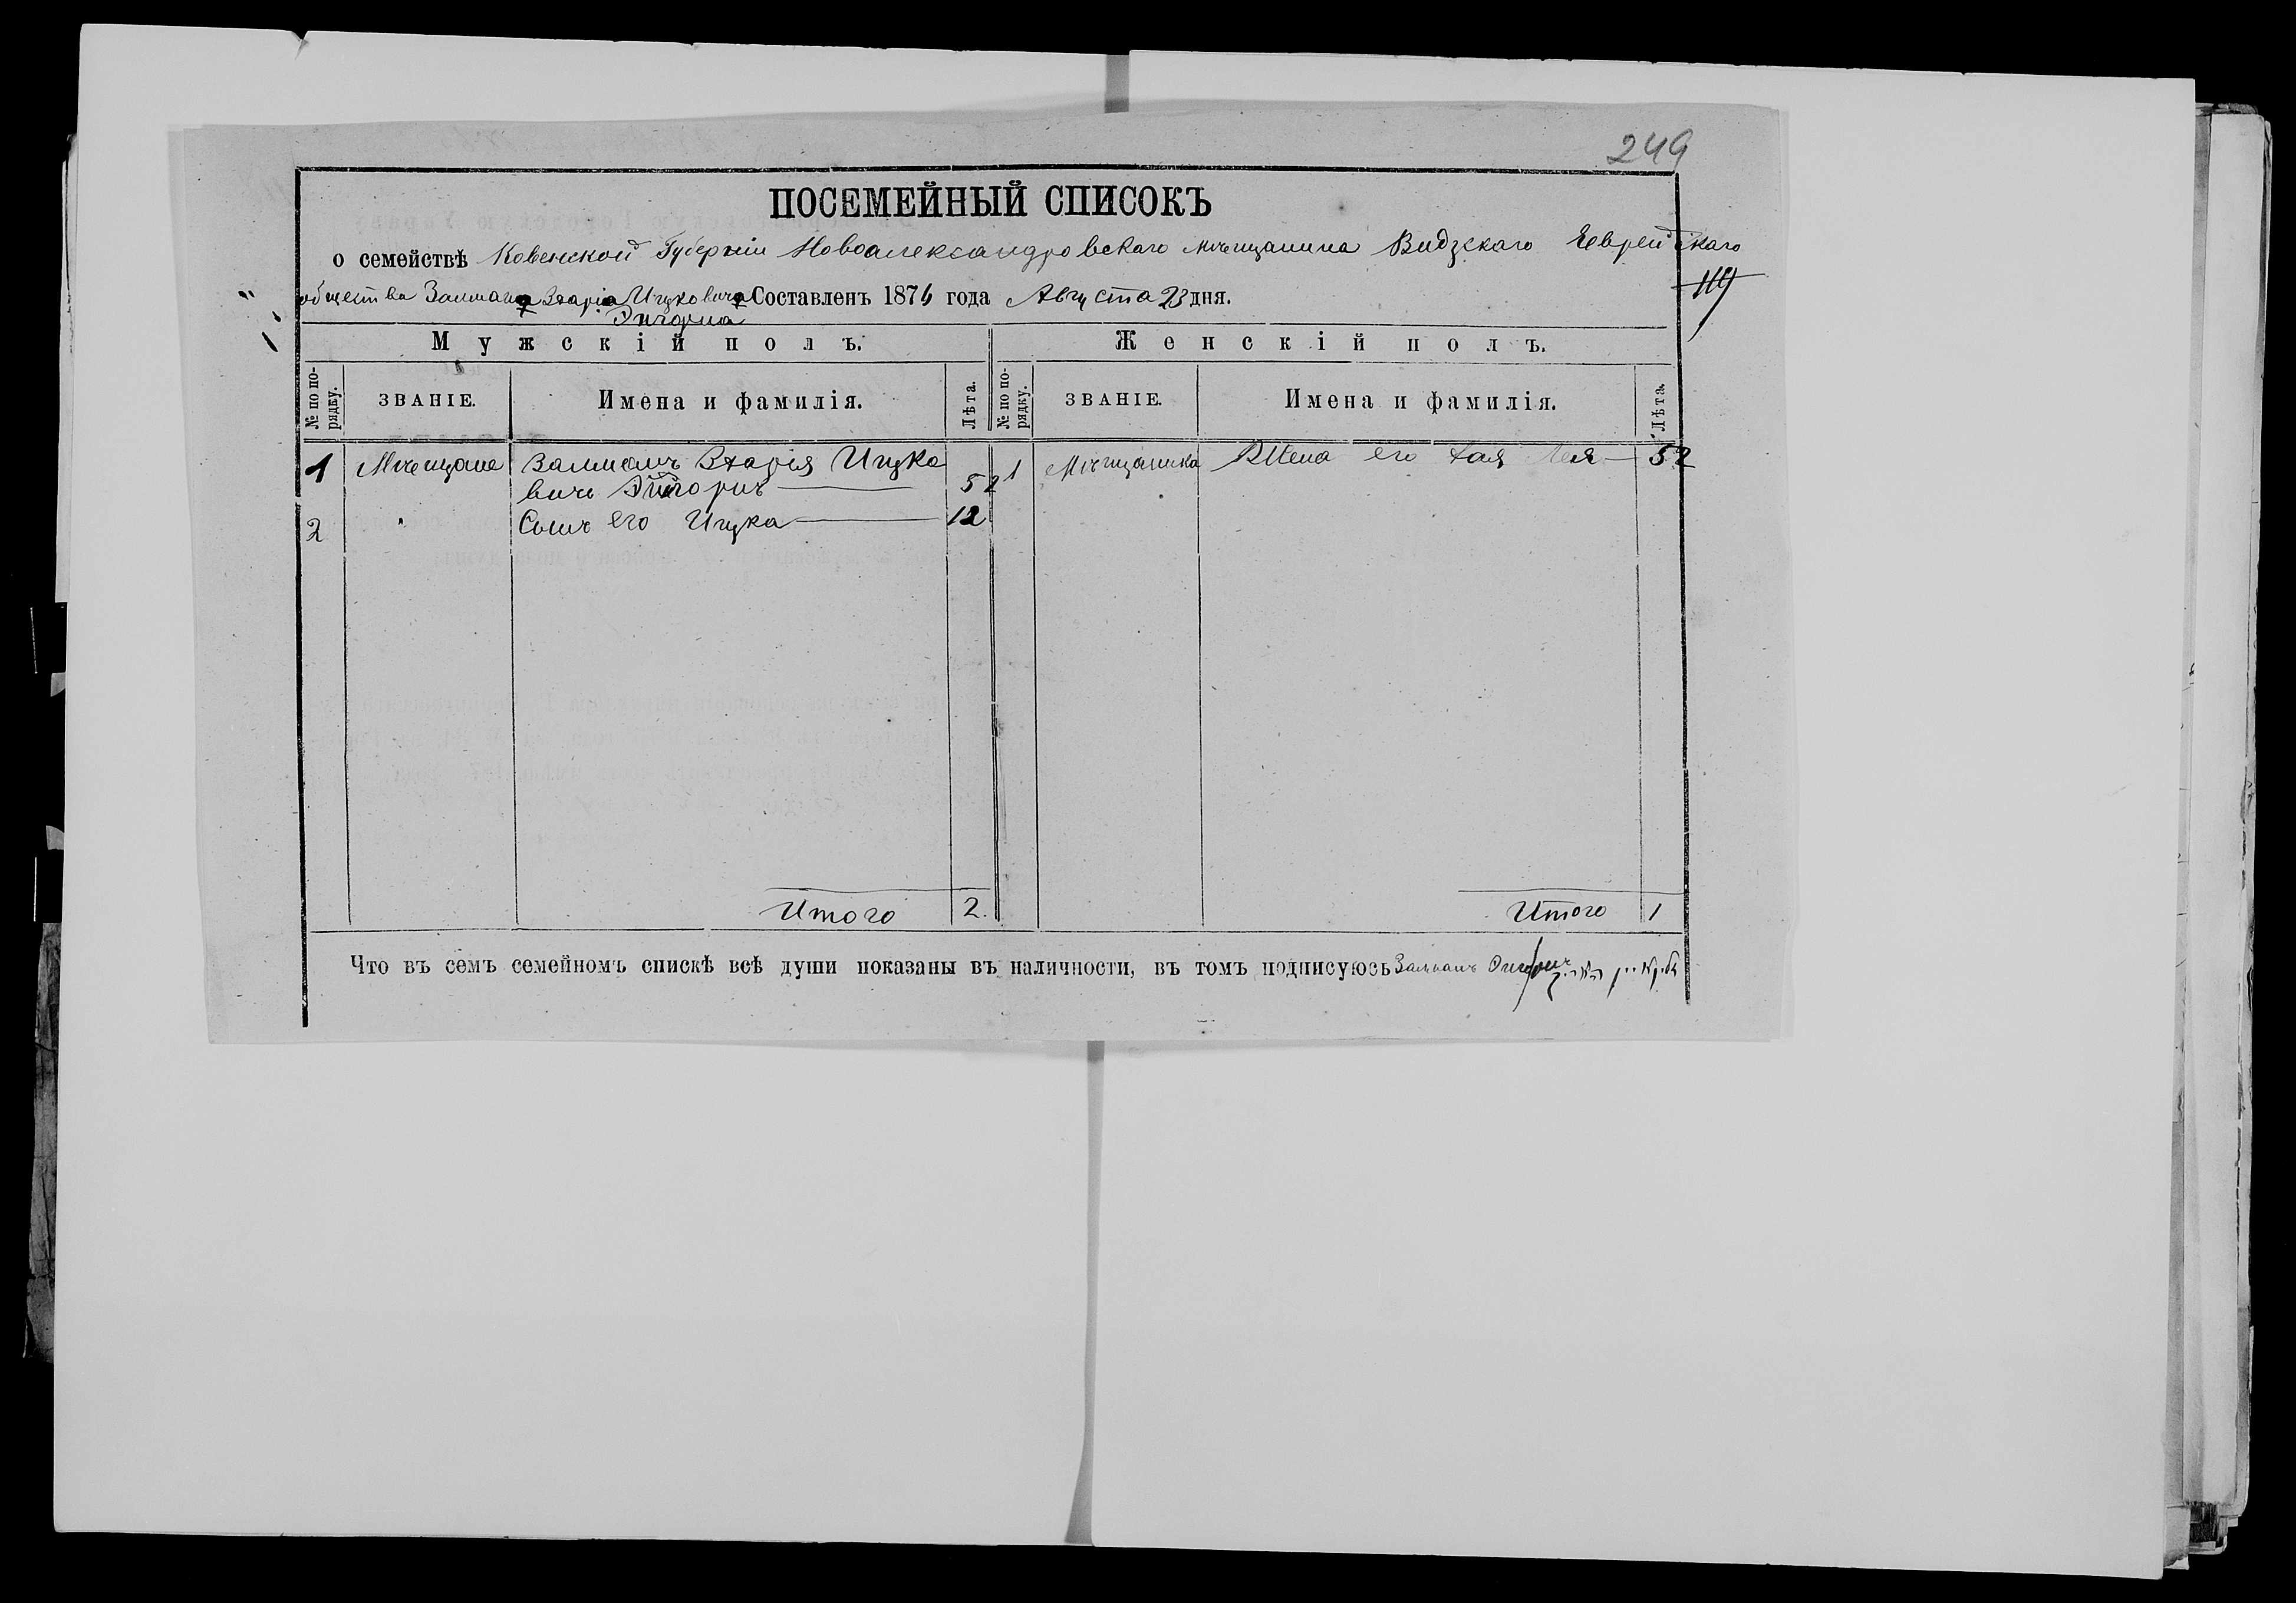 249
ПОСЕМЕЙНЫЙ СПИСОКЪ
о семействѣ Ковенской Губерніи Новоалександровскаго мѣщанина Видзскаго Еврейскаго
общества Залмана Ицковича Составленъ 1874 года Августа 23 дня.
119
Мужскій полъ. Женскій полъ.
№ по порядку. ЗВАНІЕ. Имена и фамилія. Лѣта. № по порядку. ЗВАНІЕ. Имена и фамилія. Лѣта.
1 Мѣщане Залманъ Ицко 1 Мѣщанка Жена его Хая Лея 52
вичъ 52
2 " Сынъ его Ицка 12
Итого 2. Итого 1
Что въ семъ семейномъ спискѣ всѣ души показаны въ наличности, въ томъ подписуюсь Залманъ